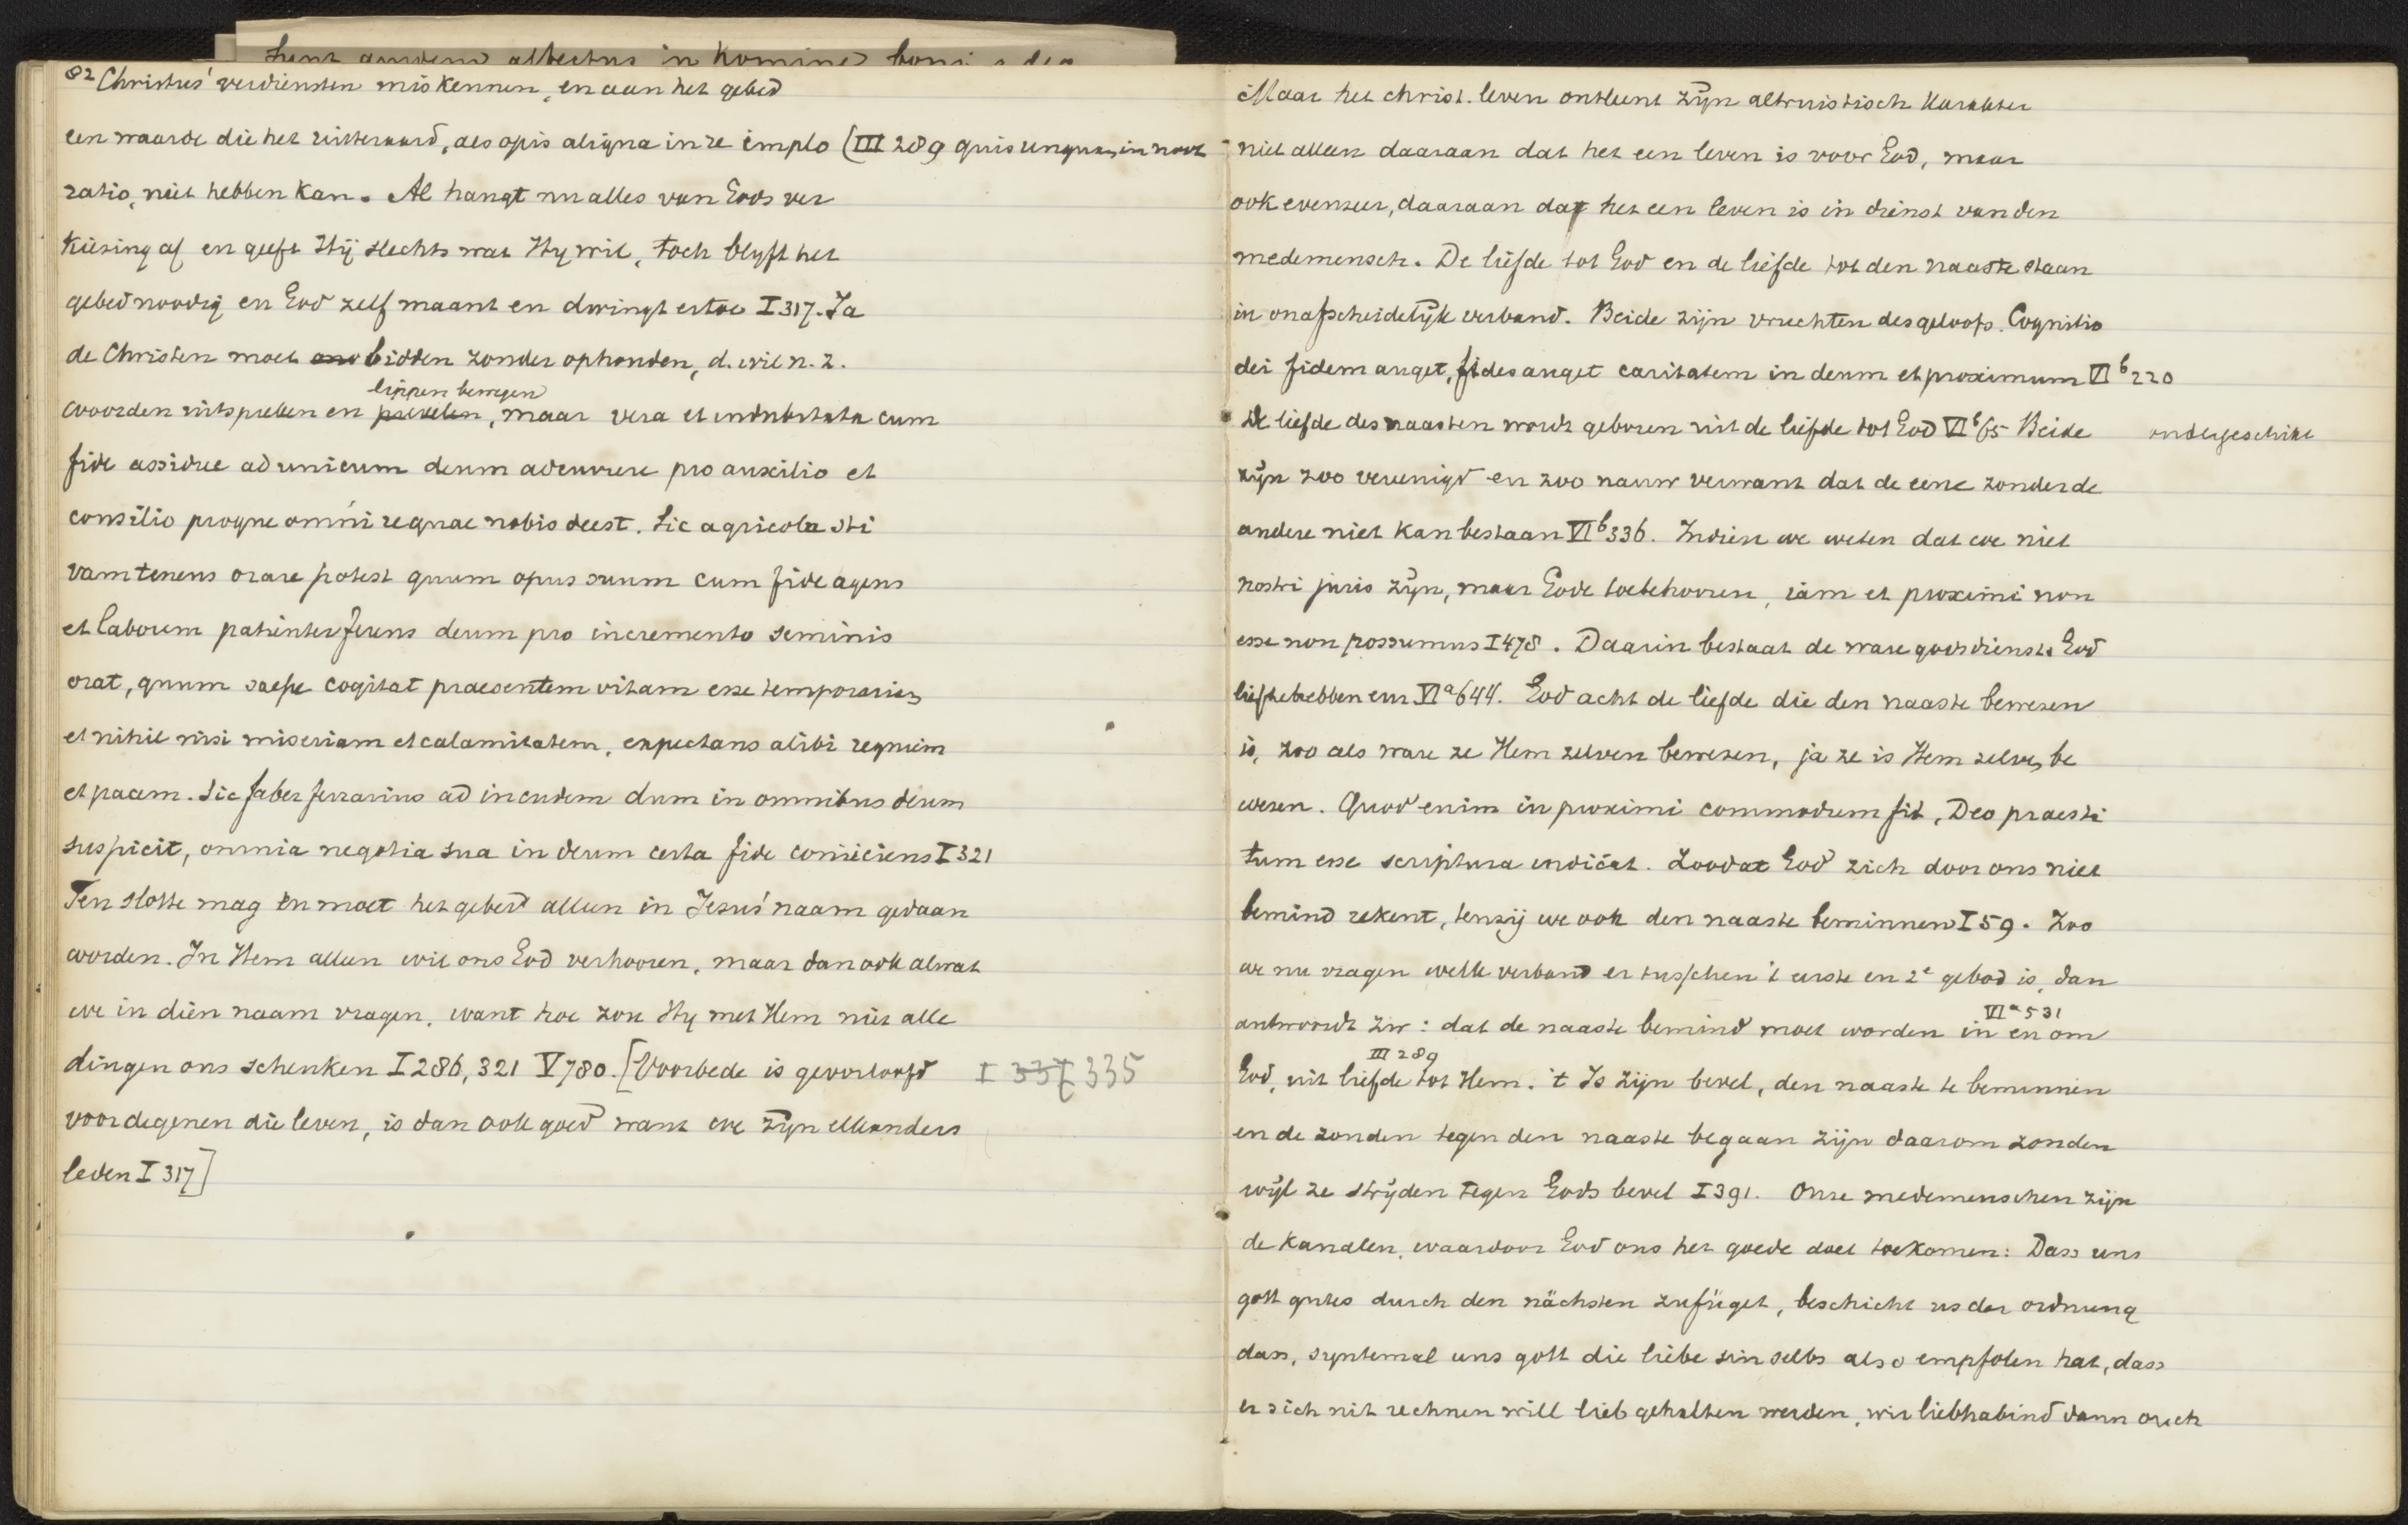 82 Christus' verdiensten miskennen, en aan het gebed
een waarde die het uiteraard, als opis aliqua in re implo (III 289 quis unquam in
ratio, niet hebben kan. Al hangt nu alles van Gods ver
kiezing af en geeft Hij slechts wat Hy wil, toch blyft het
gebed noodig en God zelf maant en dwingt ertoe I 317. Ja
de Christen moet bidden zonder ophouden, d. wil n. z.
lippen bewegen
woorden uitspreken en prevelen, maar vera et indubitata cum
fide assidue ad unicum deum adcurrere pro auxilio et
consilio proque omni re quae nobis deest. Sic agricola sti
vam tenens orare potest quum opus suum cum fide agens
et laborem patienter ferens deum pro incremento seminis
orat, quum saepe cogitat praesentem vitam esse temporariam
et nihil nisi miseriam et calamitatem, expectans alibi requiem
et pacem. Sic faber ferrarius ad incudem dum in omnibus deum
suspicit, omnia negotia sua in deum certa fide coniiciens I 321
Ten slotte mag en moet het gebed alleen in Jezus' naam gedaan
worden. In Hem alleen wil ons God verhooren, maar dan ook alwat
we in dien naam vragen, want hoe zou Hy met Hem niet alle
dingen ons schenken I 286, 321 V 780. [Voorbede is geoorloofd I 337 335
voor degenen die leven, is dan ook goed want we zyn elkanders
leden I 317]
Maar het christ. leven ontleent zyn altruistisch karakter
niet alleen daaraan dat het een leven is voor God, maar
ook evenzeer, daaraan dat het een leven is in dienst van den
medemensch. De liefde tot God en de liefde tot den naaste staan
in onafscheidelyk verband. Beide zijn vruchten des geloofs. Cognitio
dei fidem auget, fides auget caritatem in deum et proximum VI b 220
De liefde des naasten wordt geboren uit de liefde tot God VI b 65 Beide ondergeschikt
zijn zoo vereenigd en zoo nauw verwant dat de eene zonder de
andere niet kan bestaan VI b 336. Indien we weten dat we niet
nostri juris zijn, maar Gode toebehooren, iam et proximi non
esse non possumus I 478. Daarin bestaat de ware godsdienst: God
liefhebben enz VI a 644. God acht de liefde die den naaste bewezen
is, zoo als ware ze Hem zelven bewezen, ja ze is Hem zelven be
wezen. Quod enim in proximi commodum fit, Deo praesti
tum esse scriptura indicat. Zoodat God zich door ons niet
bemind rekent, tenzij we ook den naaste beminnen I 59. Zoo
we nu vragen welk verband er tusschen 't eerste en 2e gebod is, dan
VI a 531
antwoordt Zw: dat de naaste bemind moet worden in en om
III 289
God, uit liefde tot Hem. 't Is zijn bevel, den naaste te beminnen
en de zonden tegen den naaste begaan zijn daarom zonden
wijl ze strijden tegen Gods bevel I 391. Onze medemenschen zijn
de kanalen, waardoor God ons het goede doet toekomen: Dass uns
gott gutes durch den nächsten zufüget, beschicht us der ordnung
dass, syntemal uns gott die liebe sin selbs also empfolen hat, dass
er sich nit rechnen will lieb gehalten werden, wir liebhabind dann ouch